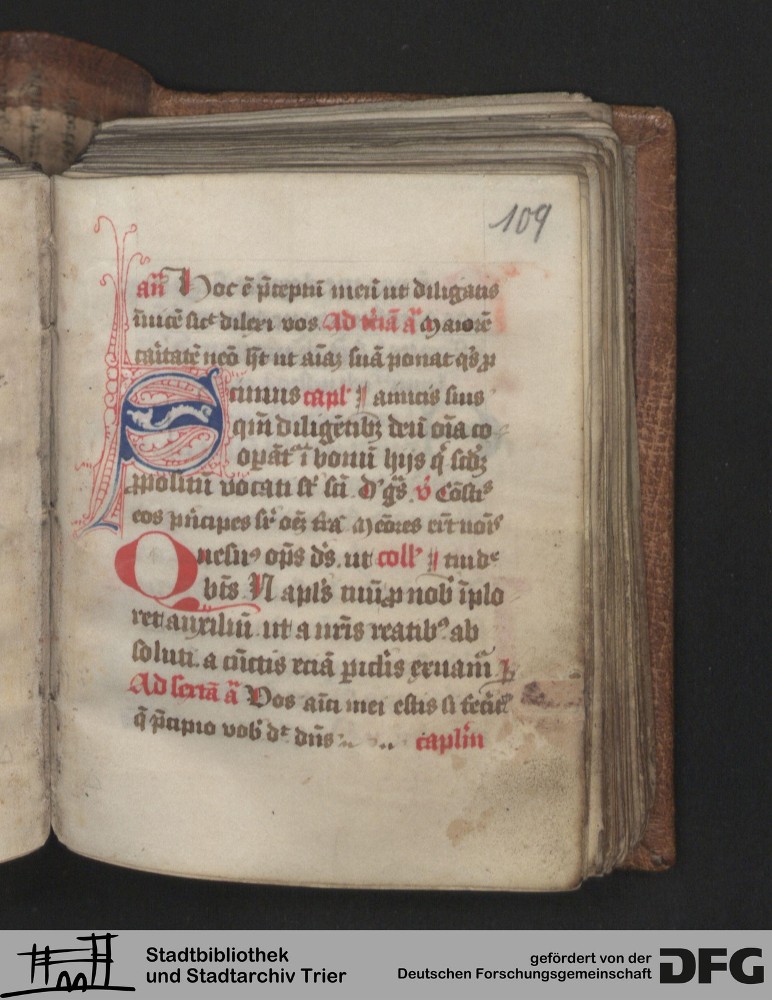 109
añ Hoc ē p̄ceptū meū ut diligatis
īuicē sic᷑ dilexi vos. Ad t̓ciā ā Maiorē
caritatē nēo h̄t ut aīaꝫ suā ponat q̓s ꝓ
Scimus capl̓ ‖ amicis suis
qm̄ diligētibꝫ deū oīa co
opāt᷑ ī bonū hijs q̓ scd̓ꝫ
ꝓpositū vocati st̄ sc̄i. D̓ gr̄s. v̓ Cōsti᷑
eos p̄ncipes sr̄ oēꝫ t̄rā
Quesum⁹ op̄s ds̄. ut coll̓ ‖
bt̄s N apl̓s tuū ꝓ nob̓ īplo
ret auxiliū. ut a nr̄is reatib⁹ ab
soluti. a cūctis eciā pic̄lis exuam̄
Ad sextā ā Vos aīci mei estis si fec̄it᷑
q̄ p̄cipio vob̓ d᷑t dn̄s capl̄m
Stadtbibliothek
und Stadtarchiv Trier
gefördert von der
Deutschen Forschungsgemeinschaft DFG